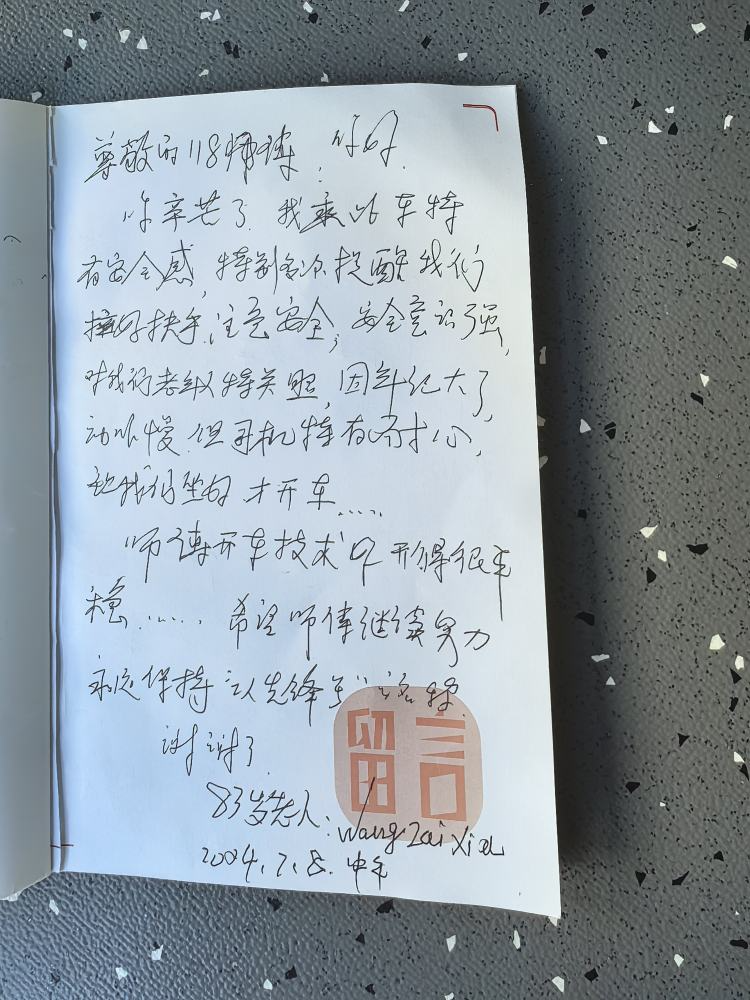 尊敬的118师傅：你好.
你辛苦了 我乘此车特
有安全感，特别多次提醒我们
拉好扶手，注意安全，安全意识强，
对我们老年人特关照，因年纪大了，
动作慢，但司机特有耐心，
让我们坐好 才开车.....
师傅开车技术好 开得很平
稳...... 希望师傅继续努力
永远保持“先锋车”
谢谢了
83岁老人：Wang Zai Xiu
2004.7.8. 中午
留言